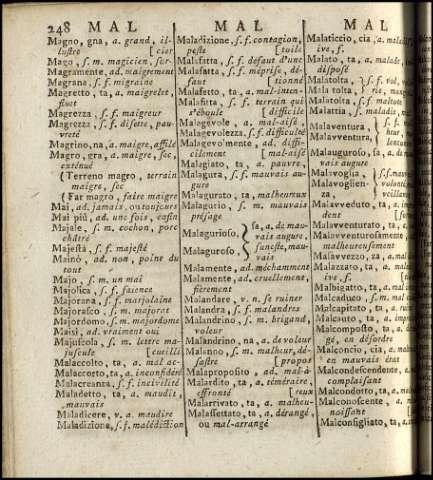 248 MAL
MAL
MAL
Magno, gna, a. grand, il-
lustre [cier
Mago, s. m. magicien, sor-
Magramente, ad. maigrement
Magrana, s. f. migraine
Magretto, ta, a. maigrelet,
fluet
Magrezza, s. f. maigreur
Magrezza, s. f. disette, pau-
vreté
Magrino, na, a. maigre, affilé
Magro, gra, a. maigre, sec,
exténué
(Terreno magro, terrain
maigre, sec
(Far magro, faire maigre
Mai, ad. jamais, ou toujours
Mai più, ad. une fois, enfin
Majale, s. m. cochon, porc
châtré
Majestà, s. f. majesté
Mainò, ad. non, point du
tout
Majo, s. m. un mai
Majolica, s. f. faience
Majorana, s. f. marjolaine
Majorasco, s. m. majorat
Majordomo, s. m. majordome
Maisì, ad. vraiment oui
Majuscola, s. m. lettre ma-
juscule [cueilli
Malaccolto, ta, a. mal ac-
Malaccorto, ta, a. inconsidéré
Malacreanza, s. f. incivilité
Maladetto, ta, a. maudit,
mauvais
Maladicere, v. a. maudire
Maladizione, s. f. malédiction
Maladizione, s. f. contagion,
peste [toile
Malafatta, s. f. défaut d'une
Malafatta, s. f. méprise, dé-
faut [tionné
Malafetto, ta, a. mal-inten-
Malafitta, s. f. terrain qui
s'éboule [difficile
Malagevole, a. mal-aisé,
Malagevolezza, s. f. difficulté
Malagevolmente, ad. diffi-
cilement [mal-aisé
Malagiato, ta, a. pauvre,
Malagura, s. f. mauvais au-
gure
Malagurato, ta, malheureux
Malagurio, s. m. mauvais
présage
Malagurioso, } sa, a. de mau-
vais augure,
Malaguroso, } funeste, mau-
vais
Malamente, ad. méchamment
Malamente, ad. cruellement,
fièrement
Malandare, v. n. se ruiner
Malandra, s. f. malandres
Malandrino, s. m. brigand,
voleur
Malandrino, na, a. de voleur
Malanno, s. m. malheur, dé-
sastre [propos
Malaproposito, ad. mal-à-
Malardito, ta, a. téméraire,
effronté [reux
Malarrivato, ta, a. malheu-
Malassettato, ta, a. dérangé,
ou mal-arrangé
Malaticcio, cia, a.
ive, f.
Malato, ta, a. malade,
disposé
Mala tolta, } s. f. vol,
Malatolta, s. f. maltote
Malattia, s. f. maladie,
Malaventura, }
Malavventura, }
Malauguroso, sa, a. de
vais augure
Malavoglia, }
Malavoglien-
za, }
Malavveduto, ta, a.
dent
Malavventurato, ta, a.
Malavventurosamente,
malheureusement
Malavvezzo, za, a.
Malazzato, ta, a.
ive, f.
Malbigatto, ta, a.
Malcaduco, s. m.
Malcapitato, ta, a.
Malcauto, ta, a.
Malcomposto, ta, a.
gé, en désordre
Malconcio, cia, a.
en mauvais état
Malcondescendente,
complaisant
Malcondotto, ta, a.
Malconoscente, a.
noissant
Malconsigliato, ta, a.